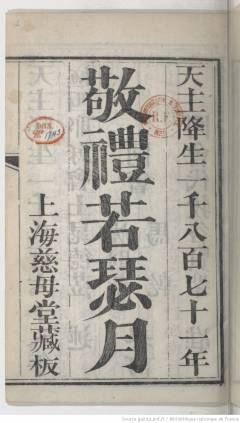 天主降生一千八百七十一年
敬禮若瑟月
上海慈母堂藏板
Source gallica.bnf.fr / Bibliothèque nationale de France